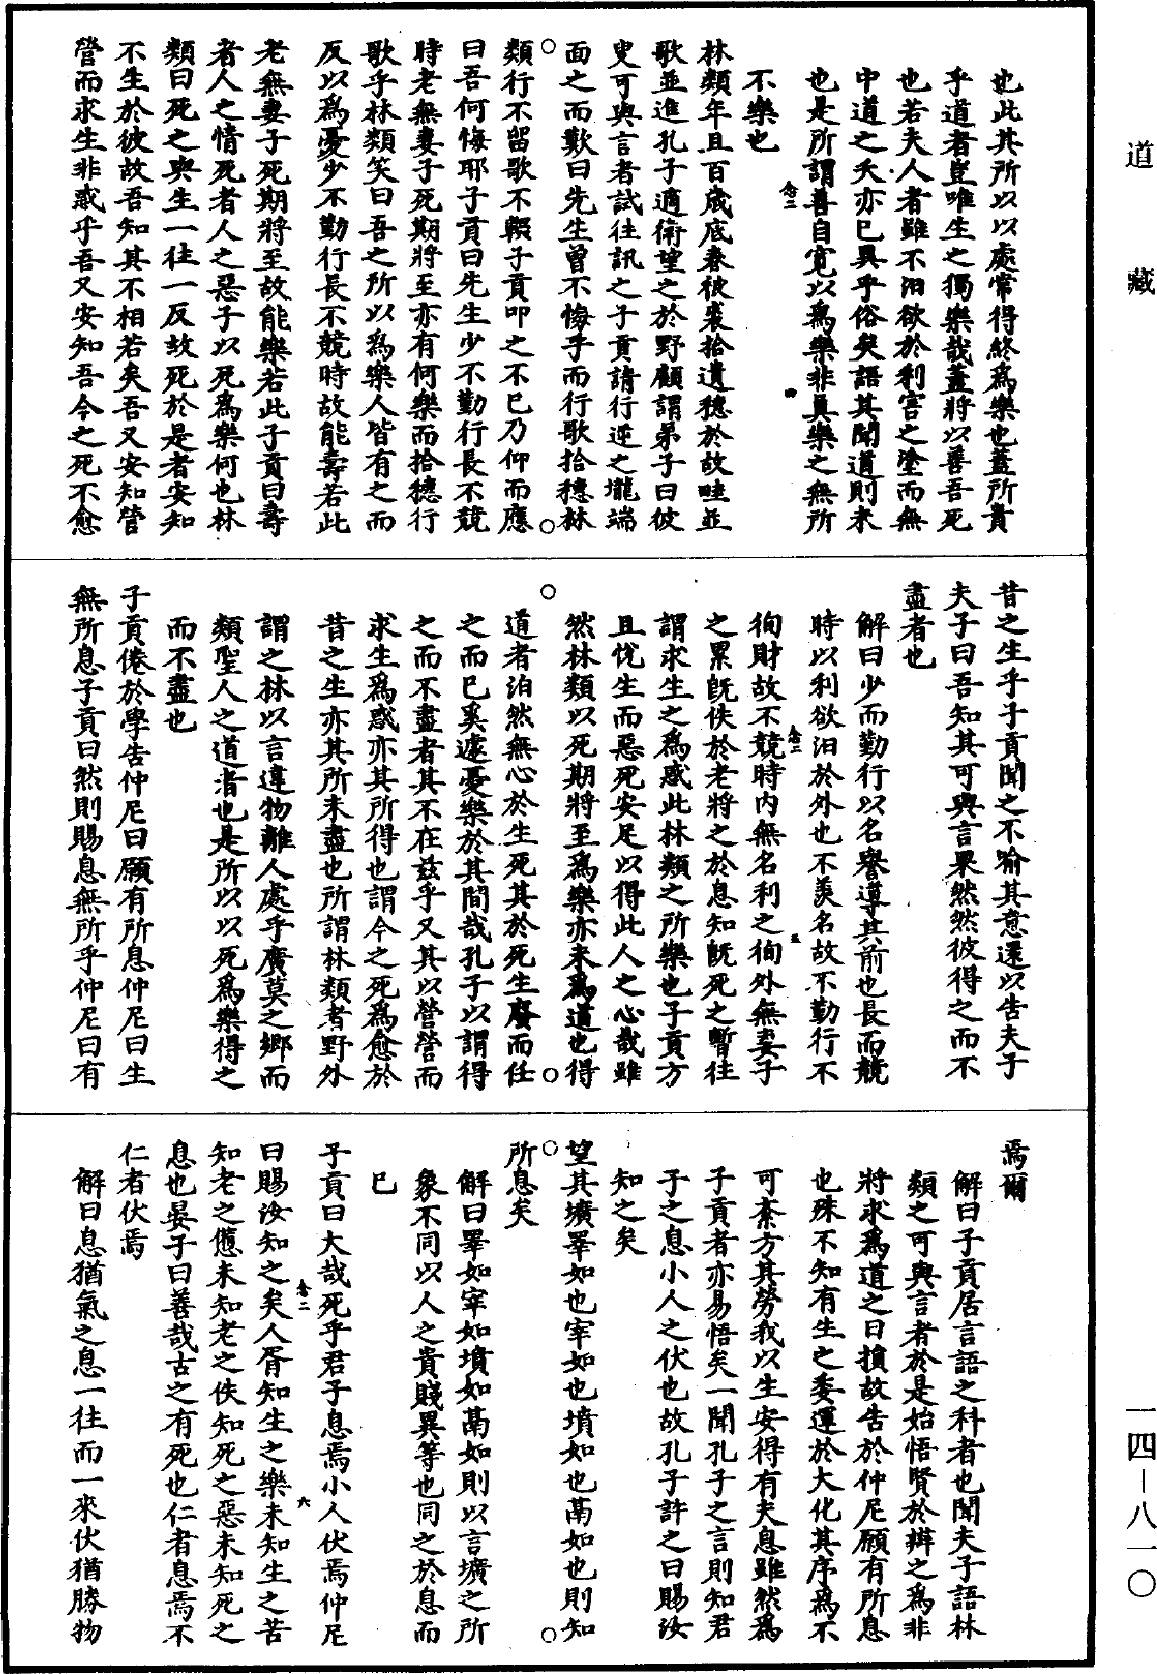 道藏
也此其所以以處常得終爲樂也蓋所貴
乎道者豈唯生之獨樂哉蓋將以善吾死
也若夫人者雖不汨欲於利害之塗而無
中道之夭亦已異乎俗矣語其聞道則未
也是所謂善自寬以爲樂非眞樂之無所
不樂也
念二
四
林類年且百歲底春被裘拾遺穗於故畦並
歌並進孔子適衛望之於野顧謂弟子曰彼
叟可與言者試往訊之子貢請行逆之壠端
面之而歎曰先生曾不悔乎而行歌拾穗林
類行不留歌不輟子貢叩之不已乃仰而應
曰吾何悔耶子貢曰先生少不勤行長不競
時老無妻子死期將至亦有何樂而拾穗行
歌乎林類笑曰吾之所以爲樂人皆有之而
反以爲憂少不勤行長不競時故能壽若此
老無妻子死期將至故能樂若此子貢曰壽
者人之情死者人之惡子以死爲樂何也林
類曰死之與生一往一反故死於是者安知
不生於彼故吾知其不相若矣吾又安知營
營而求生非惑乎吾又安知吾今之死不愈
昔之生乎子貢聞之不喻其意還以告夫子
夫子曰吾知其可與言果然然彼得之而不
盡者也
解曰少而勤行以名譽導其前也長而競
時以利欲汨於外也不羨名故不勤行不
徇財故不競時內無名利之徇外無妻子
念二
五
之累旣佚於老將之於息知旣死之暫往
謂求生之爲惑此林類之所樂也子貢方
且悅生而惡死安足以得此人之心哉雖
然林類以死期將至爲樂亦未爲道也得
道者泊然無心於生死其於死生廢而任
之而已奚遽憂樂於其間哉孔子以謂得
之而不盡者其不在茲乎又其以營營而
求生爲惑亦其所得也謂今之死爲愈於
昔之生亦其所未盡也所謂林類者野外
謂之林以言違物離人處乎廣莫之鄉而
類聖人之道者也是所以以死爲樂得之
而不盡也
子貢倦於學告仲尼曰願有所息仲尼曰生
無所息子貢曰然則賜息無所乎仲尼曰有
焉爾
解曰子貢居言語之科者也聞夫子語林
類之可與言者於是始悟賢於辨之爲非
將求爲道之日損故告於仲尼願有所息
也殊不知有生之委運於大化其序爲不
可紊方其勞我以生安得有夫息雖然爲
子貢者亦易悟矣一聞孔子之言則知君
子之息小人之伏也故孔子許之曰賜汝
知之矣
望其壙睪如也宰如也墳如也鬲如也則知
所息矣
解曰睪如宰如墳如鬲如則以言壙之所
象不同以人之貴賤異等也同之於息而
已
子貢曰大哉死乎君子息焉小人伏焉仲尼
念二
六
曰賜汝知之矣人胥知生之樂未知生之苦
知老之憊未知老之佚知死之惡未知死之
息也晏子曰善哉古之有死也仁者息焉不
仁者伏焉
解曰息猶氣之息一往而一來伏猶勝物
一四—八一〇